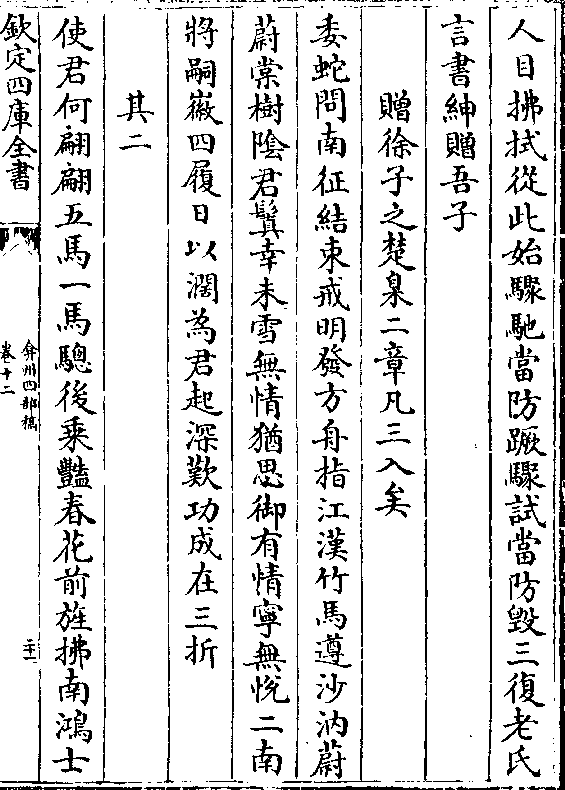 人目拂拭從此始驟馳當防蹶驟試當防毀三復老氏
言書紳贈吾子
贈徐子之楚臬二章凡三入矣
委蛇問南征結束戒明發方舟指江漢竹馬遵沙汭蔚
蔚棠樹陰君鬢幸未雪無情猶思御有情寧無悅二南
將嗣徽四履日以濶為君起深歎功成在三折
其二
使君何翩翩五馬一馬驄後乘豔春花前旌拂南鴻士
欽定四庫全書
弇州四部稿
卷十二
二十一